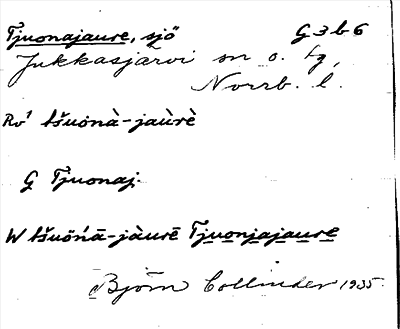 Tjuonajaure, sjö G 3 b 6
Jukkasjärvi sn o. tg,
Norrb. l.
Rv¹ tšuönà-jaùrè
G Tjuonaj.
W tšuöńā-jàurē Tjuonjajaure
Björn Collinder 1935.